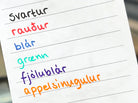 svartur
rauður
blár
grænn
fjólublár
appelsínugulur